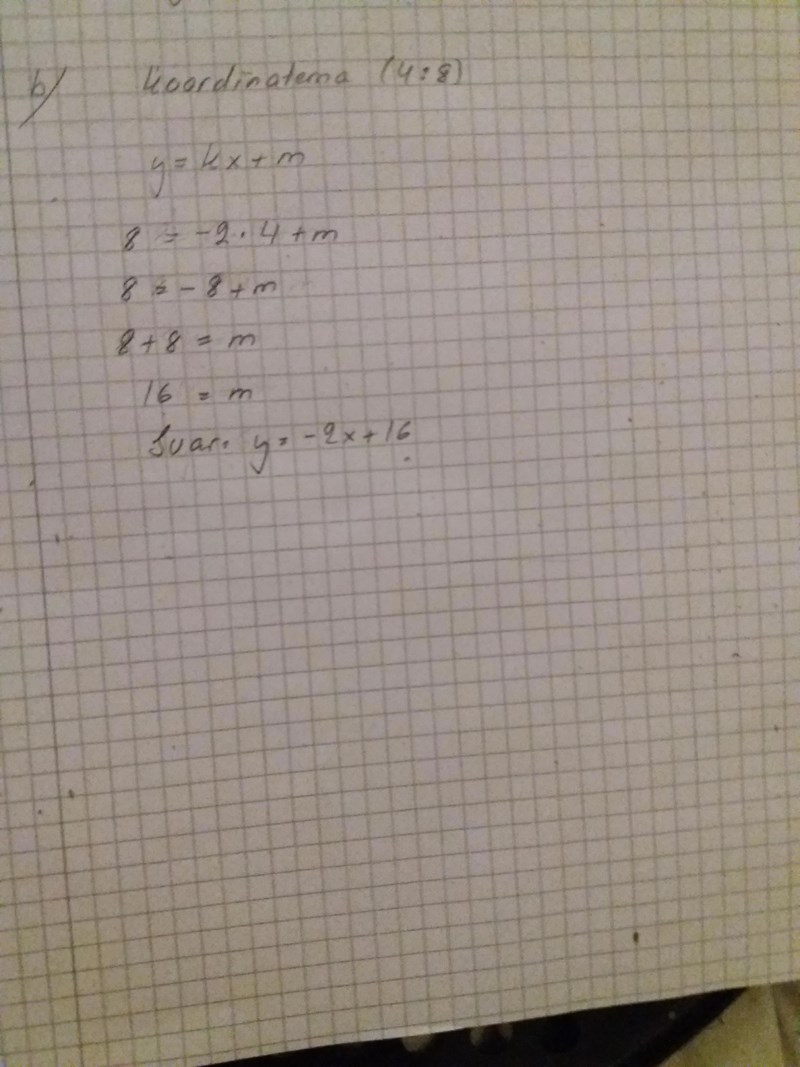 b/ Koordinaterna (4:8)
y = kx + m
8 = -2 · 4 + m
8 = -8 + m
8 + 8 = m
16 = m
Svar: y = -2x + 16